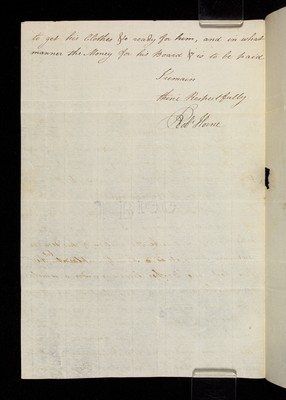 to get his Clothes &c ready for him, and in what
manner the Money for his Board &c is to be paid.
I remain
thine Respectfully
Robt Horne